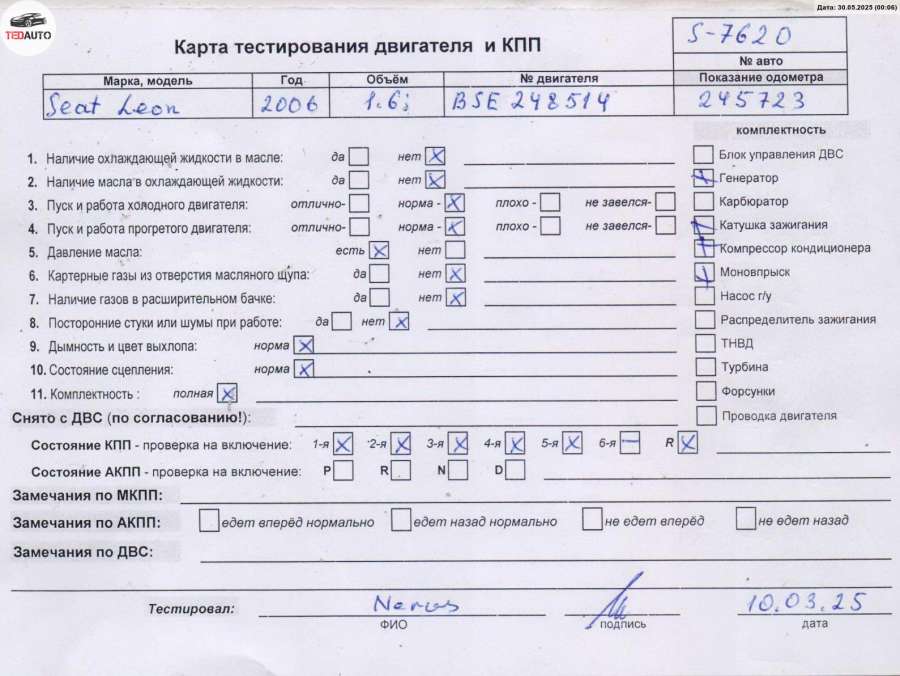 Дата: 30.05.2025 (00:06)
TEDAUTO
Карта тестирования двигателя и КПП
S-7620
№ авто
Марка, модель Год Объём № двигателя Показание одометра
Seat Leon 2006 1.6i BSE 248514 245723
комплектность
1. Наличие охлаждающей жидкости в масле: да нет
Блок управления ДВС
2. Наличие масла в охлаждающей жидкости: да нет
Генератор
3. Пуск и работа холодного двигателя: отлично- норма - плохо - не завелся-
Карбюратор
4. Пуск и работа прогретого двигателя: отлично- норма - плохо - не завелся-
Катушка зажигания
5. Давление масла: есть нет
Компрессор кондиционера
6. Картерные газы из отверстия масляного щупа: да нет
Моновпрыск
7. Наличие газов в расширительном бачке: да нет
Насос г/у
8. Посторонние стуки или шумы при работе: да нет
Распределитель зажигания
9. Дымность и цвет выхлопа: норма
ТНВД
10. Состояние сцепления: норма
Турбина
11. Комплектность : полная
Форсунки
Снято с ДВС (по согласованию!):
Проводка двигателя
Состояние КПП - проверка на включение: 1-я 2-я 3-я 4-я 5-я 6-я R
Состояние АКПП - проверка на включение: P R N D
Замечания по МКПП:
Замечания по АКПП: едет вперёд нормально едет назад нормально не едет вперёд не едет назад
Замечания по ДВС:
Тестировал: 10.03.25
ФИО подпись дата